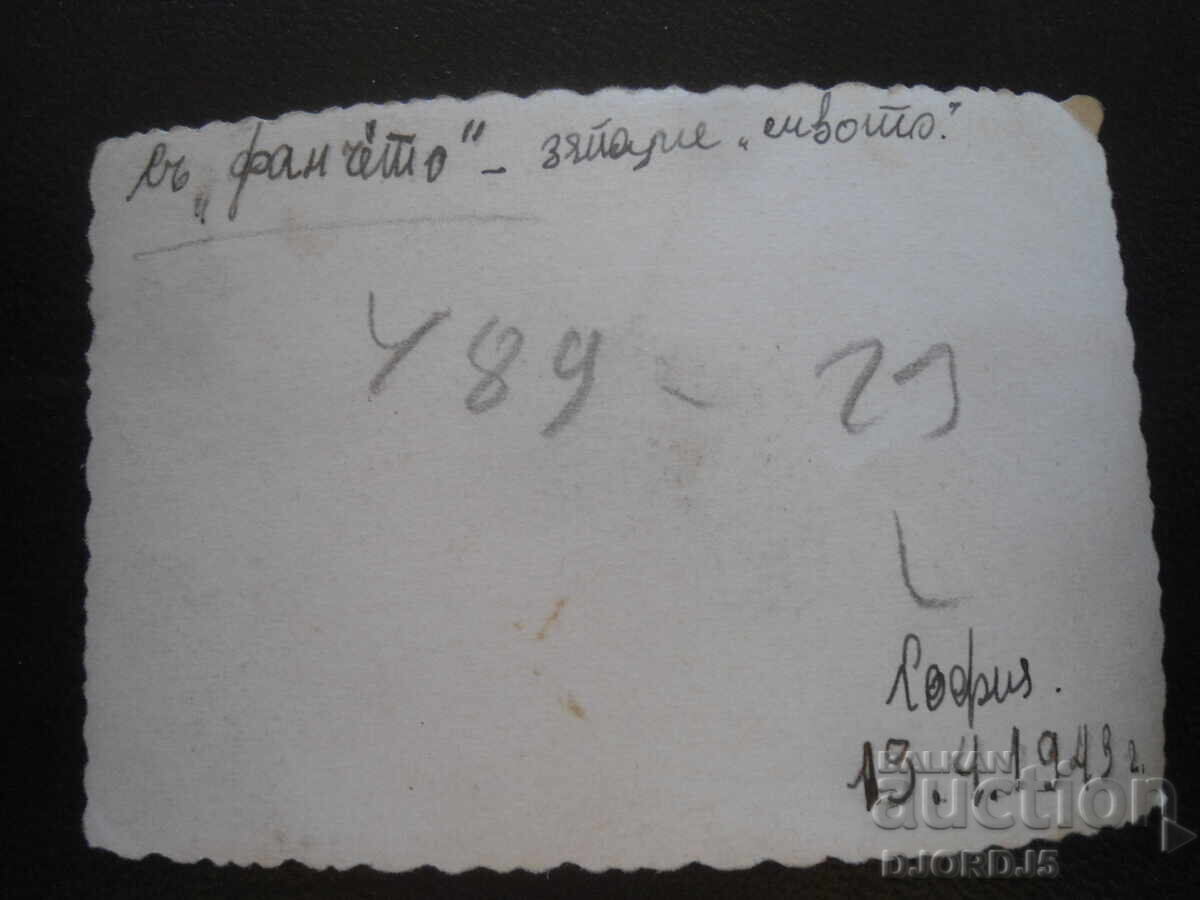 Съ „фанчето" – зяпаме „сивото."
489 - 29
София.
13.4.1943 г.
BALKAN
auction
DJORDJ5